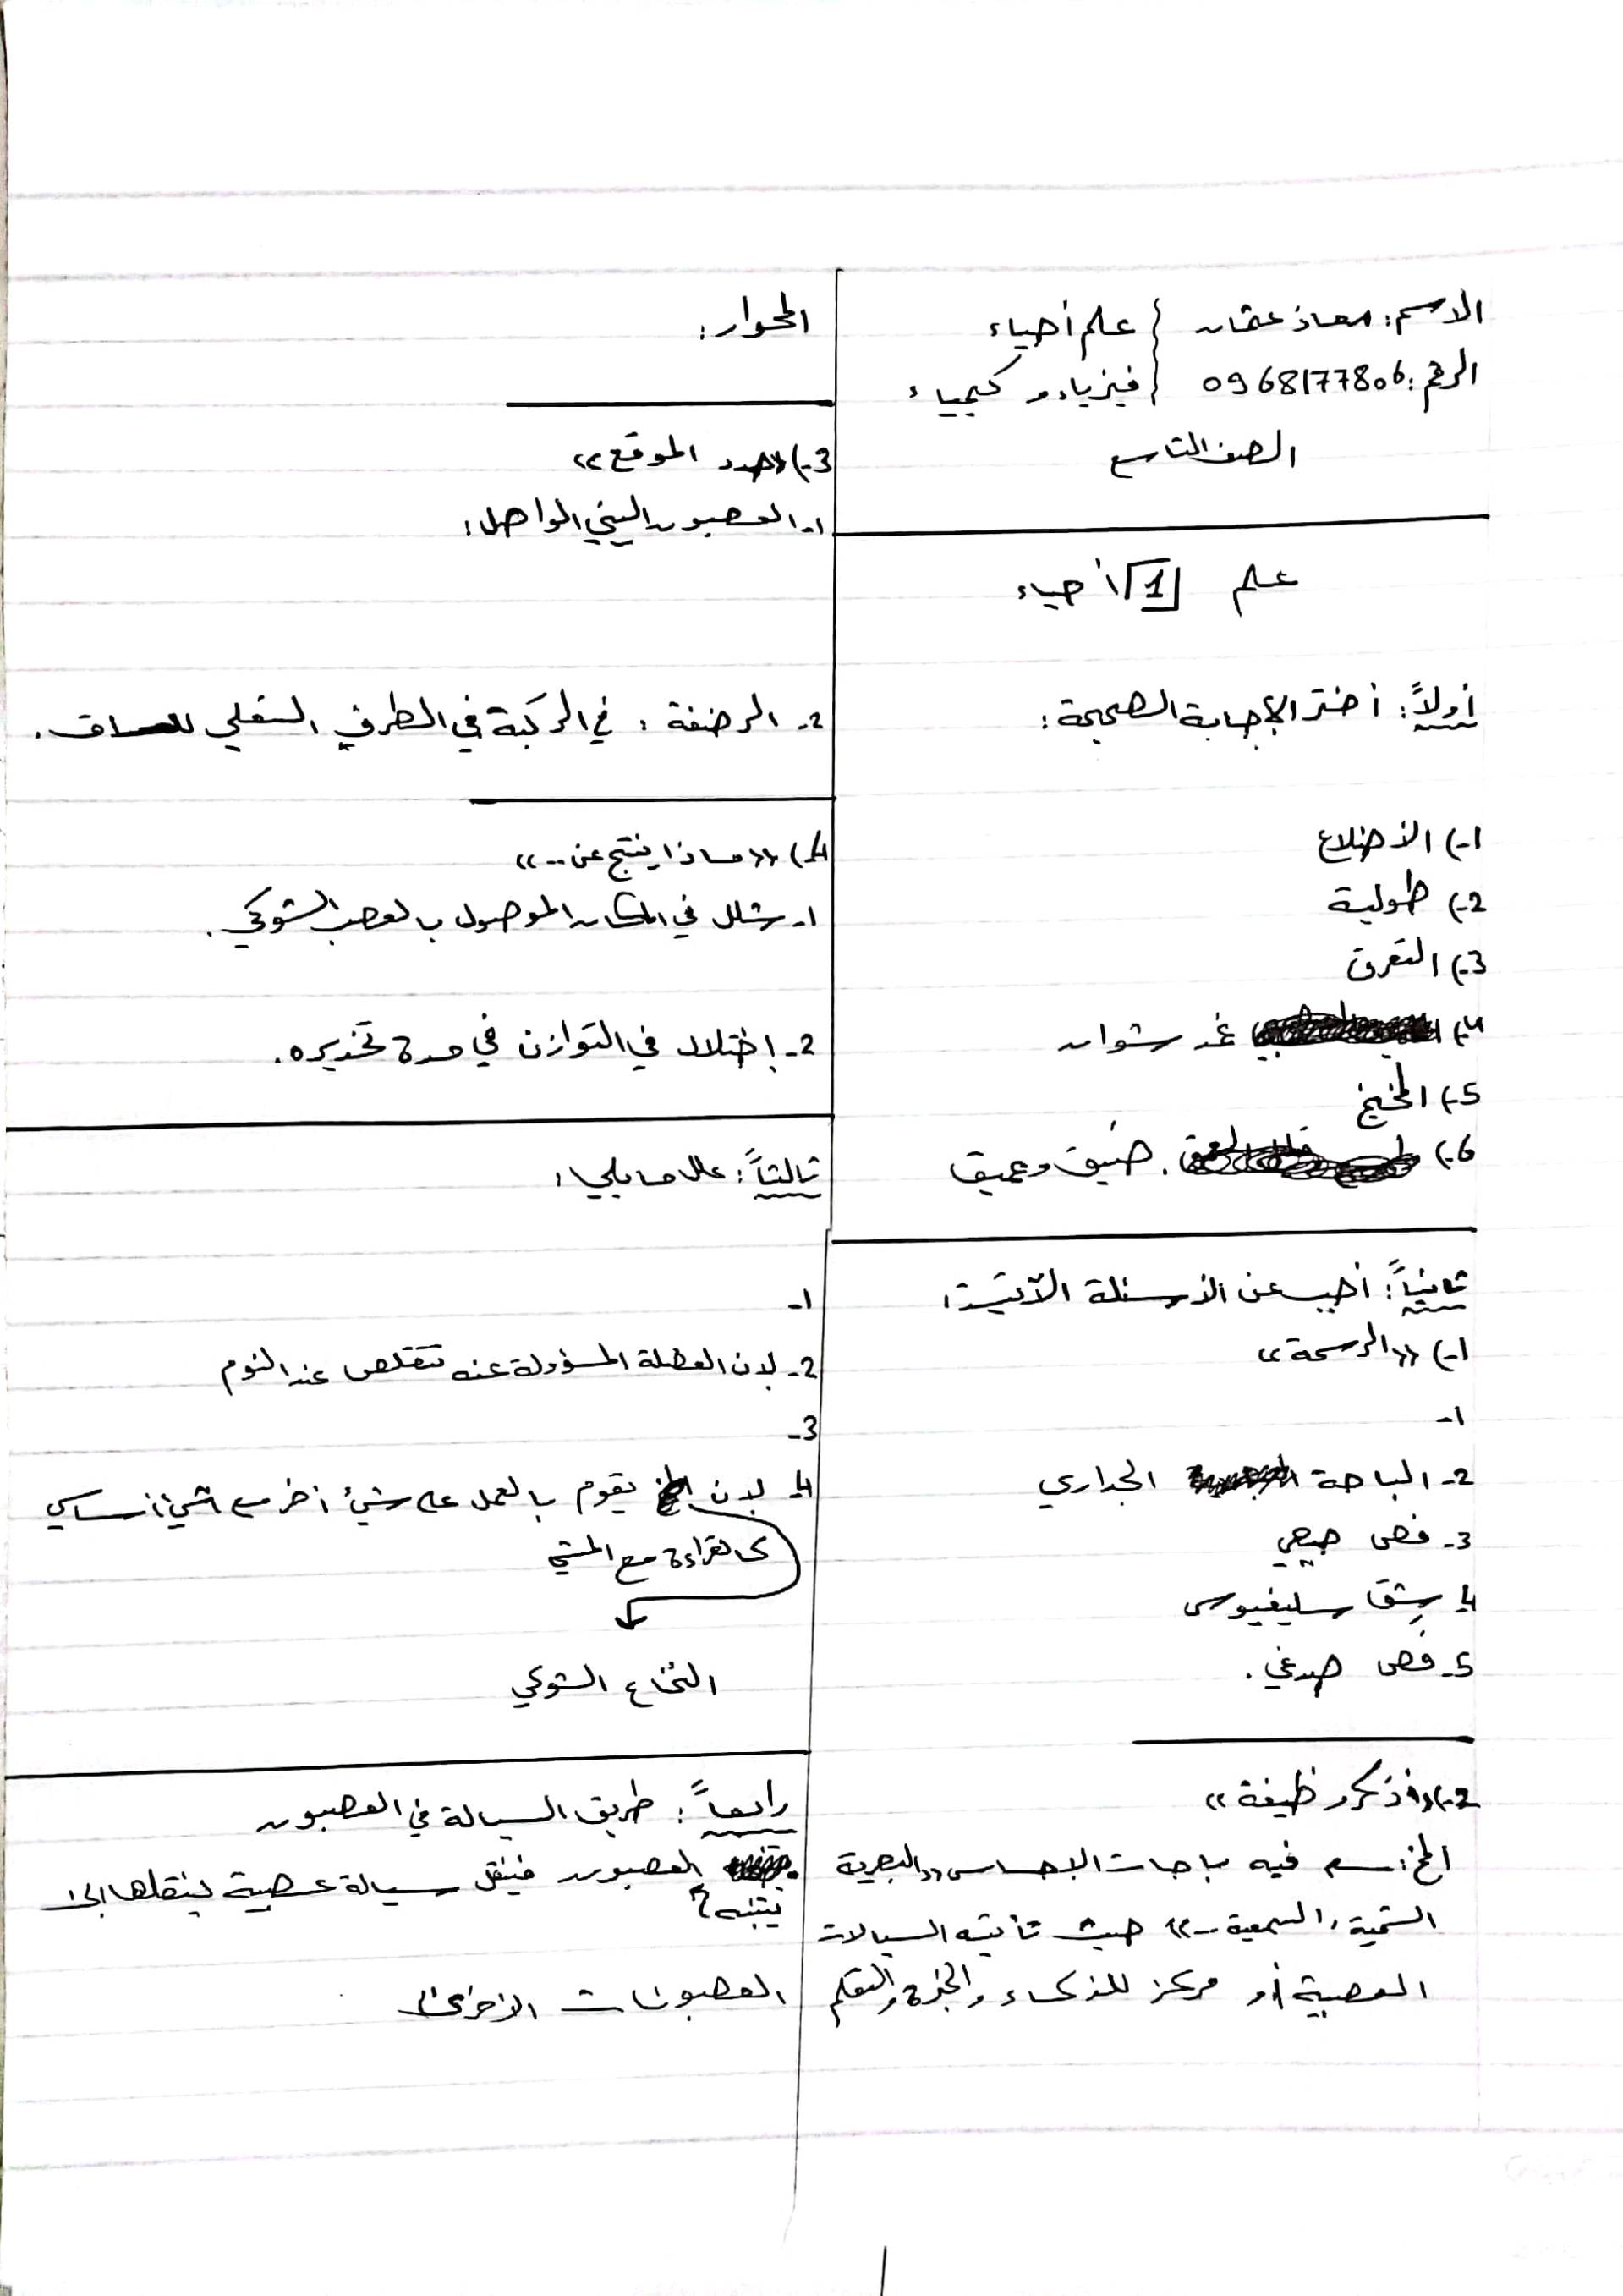 الاسم: معاذ عثمان } علم أحياء
الرقم: 0968177806 } فيزياء و كيمياء
الصف التاسع
علم 1 أحياء
أولاً: أختر الإجابة الصحيحة:
1-) الأضلاع
2-) طولية
3-) التعرق
4-) غد شوان
5-) المخيخ
6-) ضيق وعميق
ثانياً: أجب عن الأسئلة الآتية:
1-) «الرسمة»
1-
2- الباحة الجداري
3- فص جبهي
4- شق سليفيوس
5- فص صدغي.
2-) «أذكر وظيفة»
المخ: سم فيه باحات الإحساس «البصرية
الشمية، السمعية --» حيث تأتيه السيالات
العصبية أو مركز للذكاء والخبرة والتعلم
الحوار:
3-) «حدد الموقع»
1- العصبون البيني الواصل:
2- الرضفة: في الركبة في الطرف السفلي للساق.
4-) «ماذا ينتج عن --»
1- شلل في المكان الموصول بالعصب الشوكي.
2- إختلال في التوازن في مدة تخديره.
ثالثاً: علل مايلي:
1-
2- لان العضلة المسؤولة عنه تتقلص عند النوم
3-
4- لان يقوم بالعمل على شيئ أخر مع شيئ أساسي
كالقراءة مع المشي
النخاع الشوكي
رابعاً: طريق السيالة في العصبون
يتنبه العصبون فينقل سيالة عصبية لينقلها إلى
العصبونات الأخرى